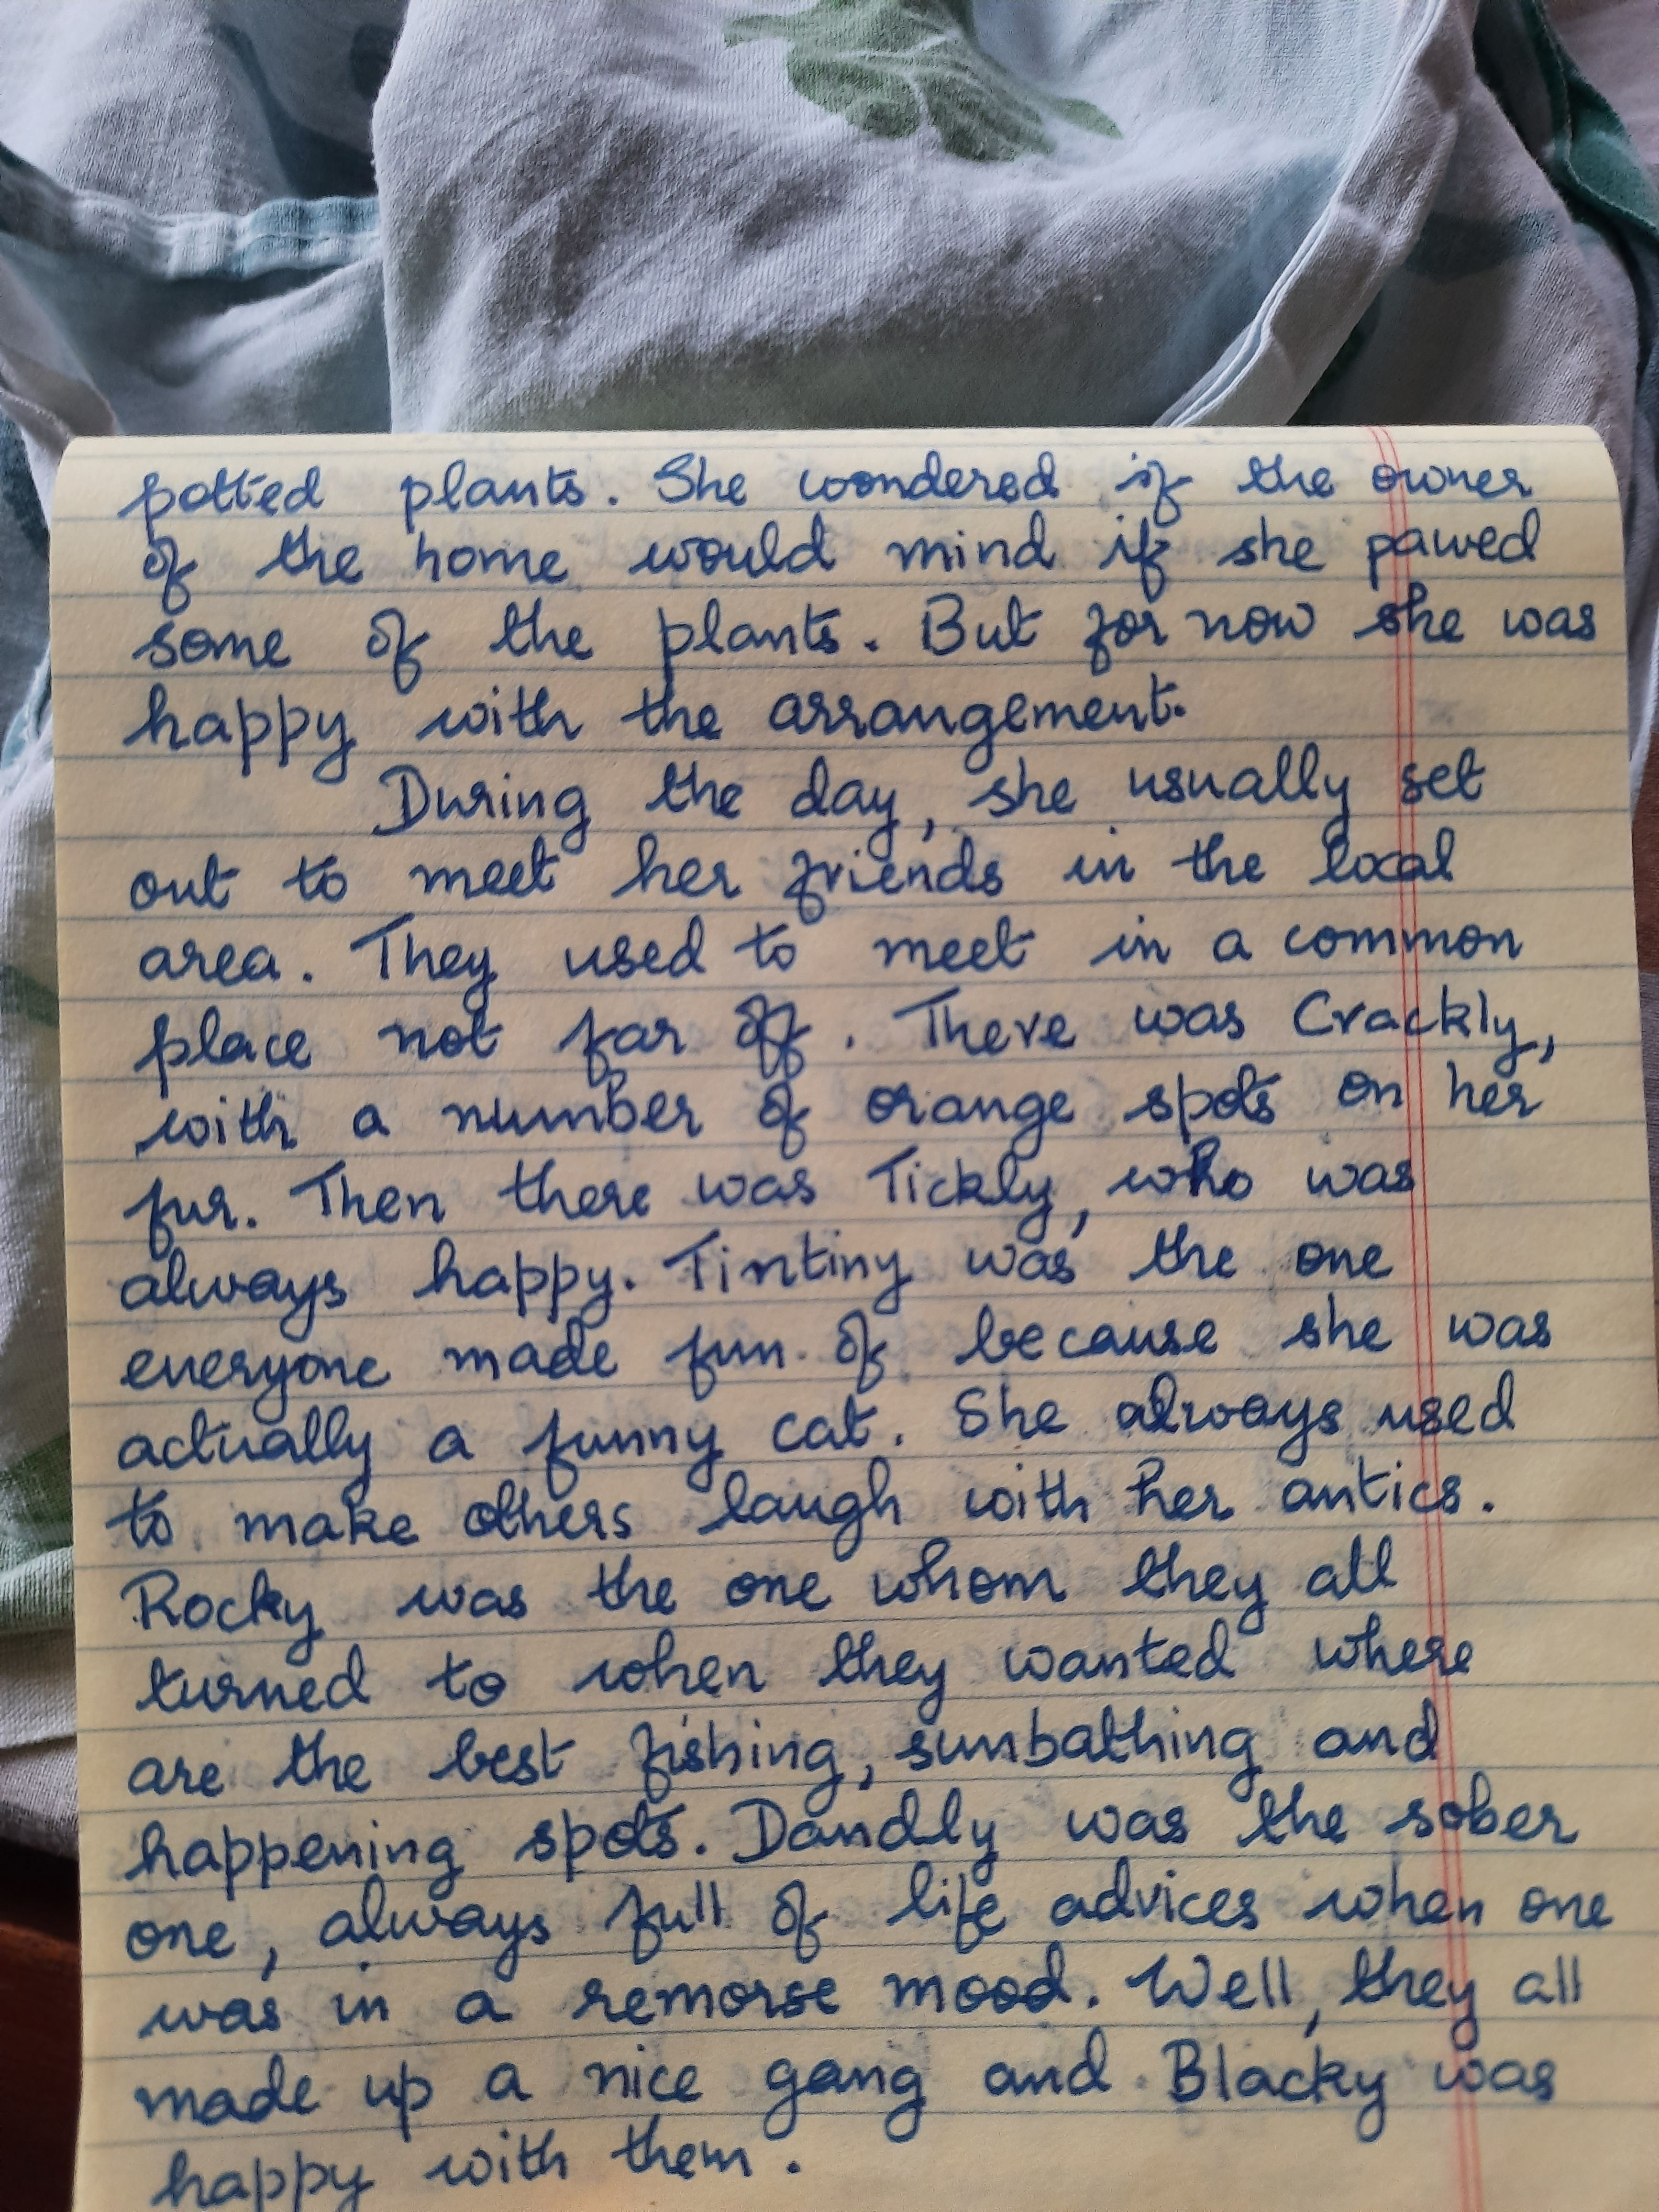 potted plants. She wondered if the owner
of the home would mind if she pawed
some of the plants. But for now she was
happy with the arrangement.
During the day, she usually set
out to meet her friends in the local
area. They used to meet in a common
place not far off. There was Crackly,
with a number of orange spots on her
fur. Then there was Tickly, who was
always happy. Tintiny was the one
everyone made fun of because she was
actually a funny cat. She always used
to make others laugh with her antics.
Rocky was the one whom they all
turned to when they wanted where
are the best fishing, sunbathing and
happening spots. Dandly was the sober
one, always full of life advices when one
was in a remorse mood. Well, they all
made up a nice gang and Blacky was
happy with them.